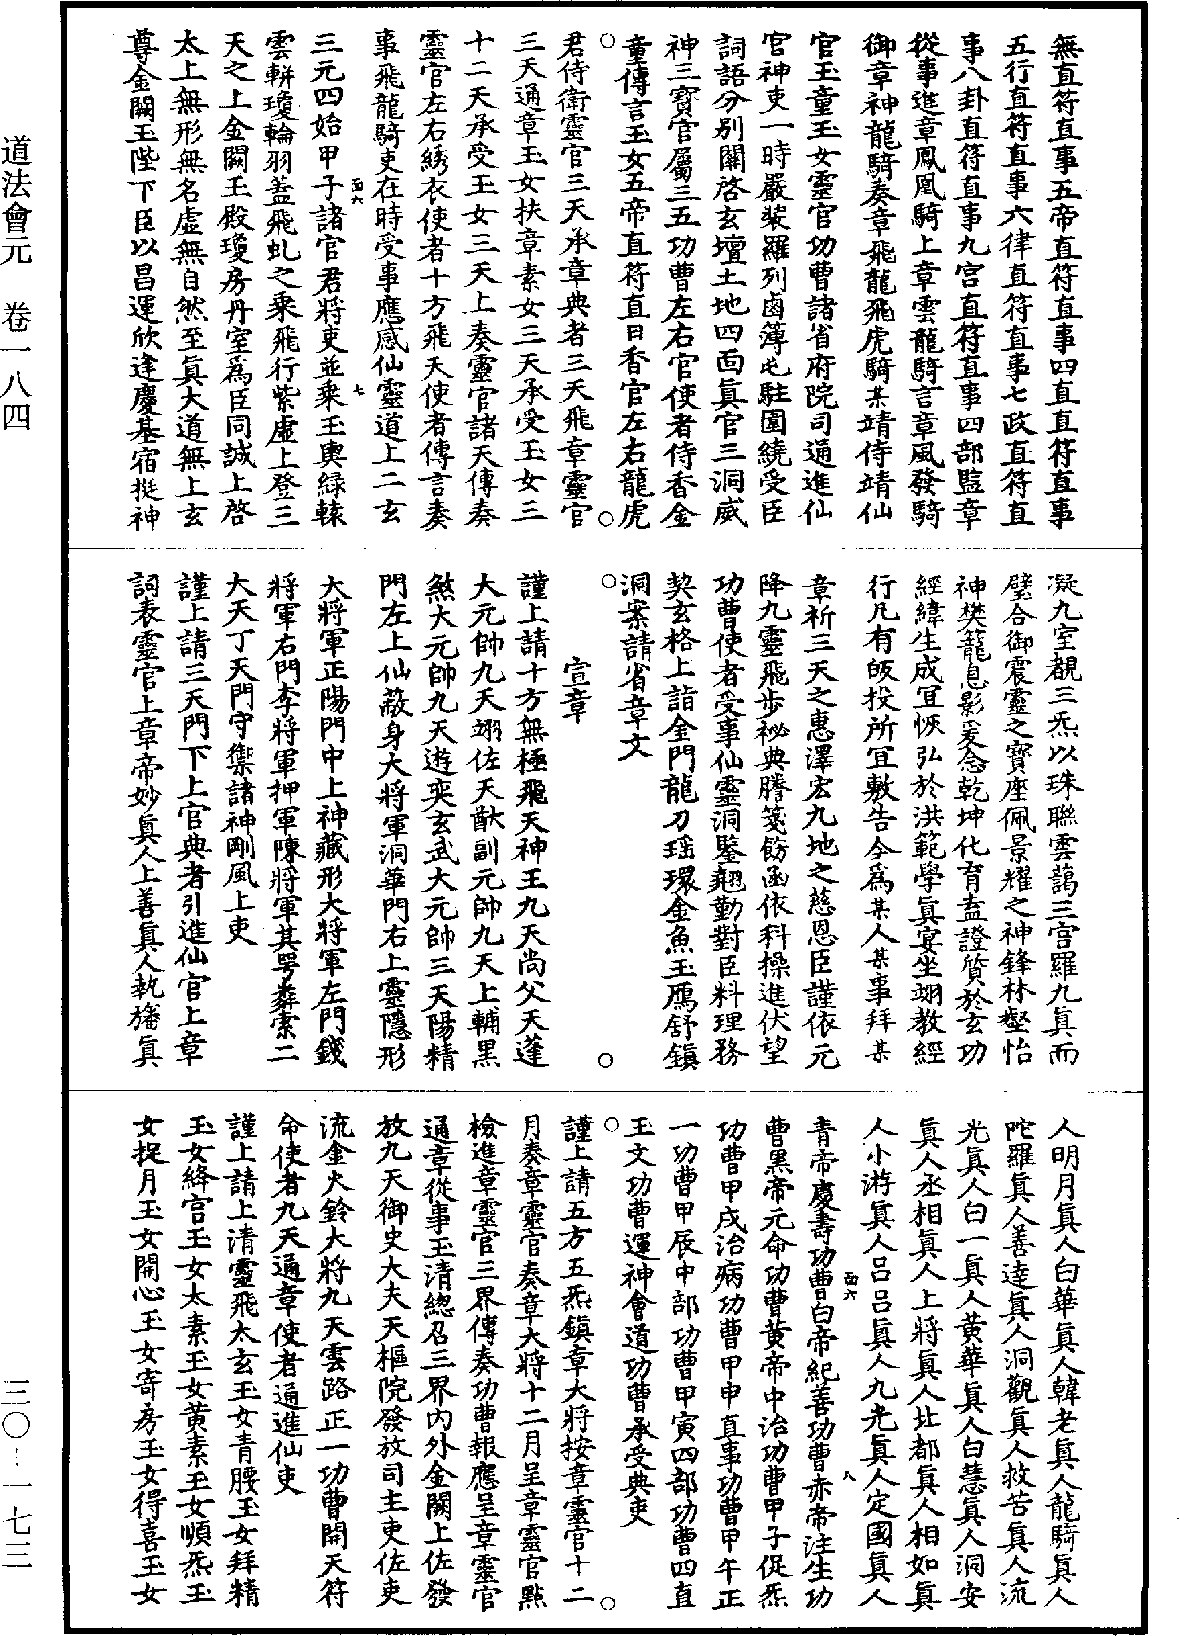 無直符直事五帝直符直事四直直符直事
五行直符直事六律直符直事七政直符直
事八卦直符直事九宮直符直事四部監章
從事進章鳳凰騎上章雲龍騎言章風發騎
御章神龍騎奏章飛龍飛虎騎某靖侍靖仙
官玉童玉女靈官功曹諸省府院司通進仙
宮神吏一時嚴裝羅列鹵簿屯駐圍繞受臣
詞語分別關啓玄壇土地四面眞官三洞威
神三寶官屬三五功曹左右官使者侍香金
童傳言玉女五帝直符直日香官左右龍虎
君侍衛靈官三天承章典者三天飛章靈官
三天通章玉女扶章素女三天承受玉女三
十二天承受玉女三天上奏靈官諸天傳奏
靈官左右綉衣使者十方飛天使者傳言奏
事飛龍騎吏在時受事應感仙靈道上二玄
三元四始甲子諸官君將吏並乘玉輿綠軿
雲軿瓊輪羽蓋飛虬之乘飛行紫虛上登三
天之上金闕玉殿瓊房丹室爲臣同誠上啓
太上無形無名虛無自然至眞大道無上玄
尊金闕玉陛下臣以昌運欣逢慶基宿挺神
凝九室覩三炁以珠聯雲藹三宫羅九眞而
璧合御震靈之寶座佩景耀之神鋒林壑怡
神樊籠息影爰念乾坤化育盍證質於玄功
經緯生成宜恢弘於洪範學眞宴坐翊教經
行凡有皈投所宜敷告今爲某人某事拜某
章祈三天之惠澤宏九地之慈恩臣謹依元
降九靈飛步祕典謄箋飭函依科操進伏望
功曹使者受事仙靈洞鑒翹勤對臣料理務
契玄格上詣金門龍刀瑶環金魚玉鴈舒鎮
洞案請省章文
宣章
謹上請十方無極飛天神王九天尚父天蓬
大元帥九天翊佐天猷副元帥九天上輔黑
煞大元帥九天遊奕玄武大元帥三天陽精
門左上仙蔽身大將軍洞華門右上靈隱形
大將軍正陽門中上神藏形大將軍左門錢
將軍右門李將軍押軍陳將軍其咢彝索二
大天丁天門守禦諸神剛風上吏
謹上請三天門下上官典者引進仙官上章
詞表靈官上章帝妙眞人上善眞人執旛眞
人明月眞人白華眞人韓老眞人龍騎眞人
陀羅眞人善達眞人洞觀眞人救苦眞人流
光眞人白一眞人黄華眞人白慧眞人洞安
眞人丞相眞人上將眞人北都眞人相如眞
人小游眞人吕吕眞人九光眞人定國眞人
青帝慶壽功曹白帝紀善功曹赤帝注生功
曹黑帝元命功曹黄帝中治功曹甲子促炁
功曹甲戌治病功曹甲申直事功曹甲午正
一功曹甲辰中部功曹甲寅四部功曹四直
玉文功曹運神會道功曹承受典吏
謹上請五方五炁鎮章大將按章靈官十二
月奏章靈官奏章大將十二月呈章靈官點
檢進章靈官三界傳奏功曹報應呈章靈官
通章從事玉清總召三界内外金闕上佐發
放九天御史大夫天樞院發放司主吏佐吏
流金火鈴大將九天雲路正一功曹開天符
命使者九天通章使者通進仙吏
謹上請上清靈飛太玄玉女青腰玉女拜精
玉女絳宫玉女太素玉女黄素玉女順炁玉
女捉月玉女開心玉女寄房玉女得喜玉女
道法會元　卷一八四
三〇—一七三